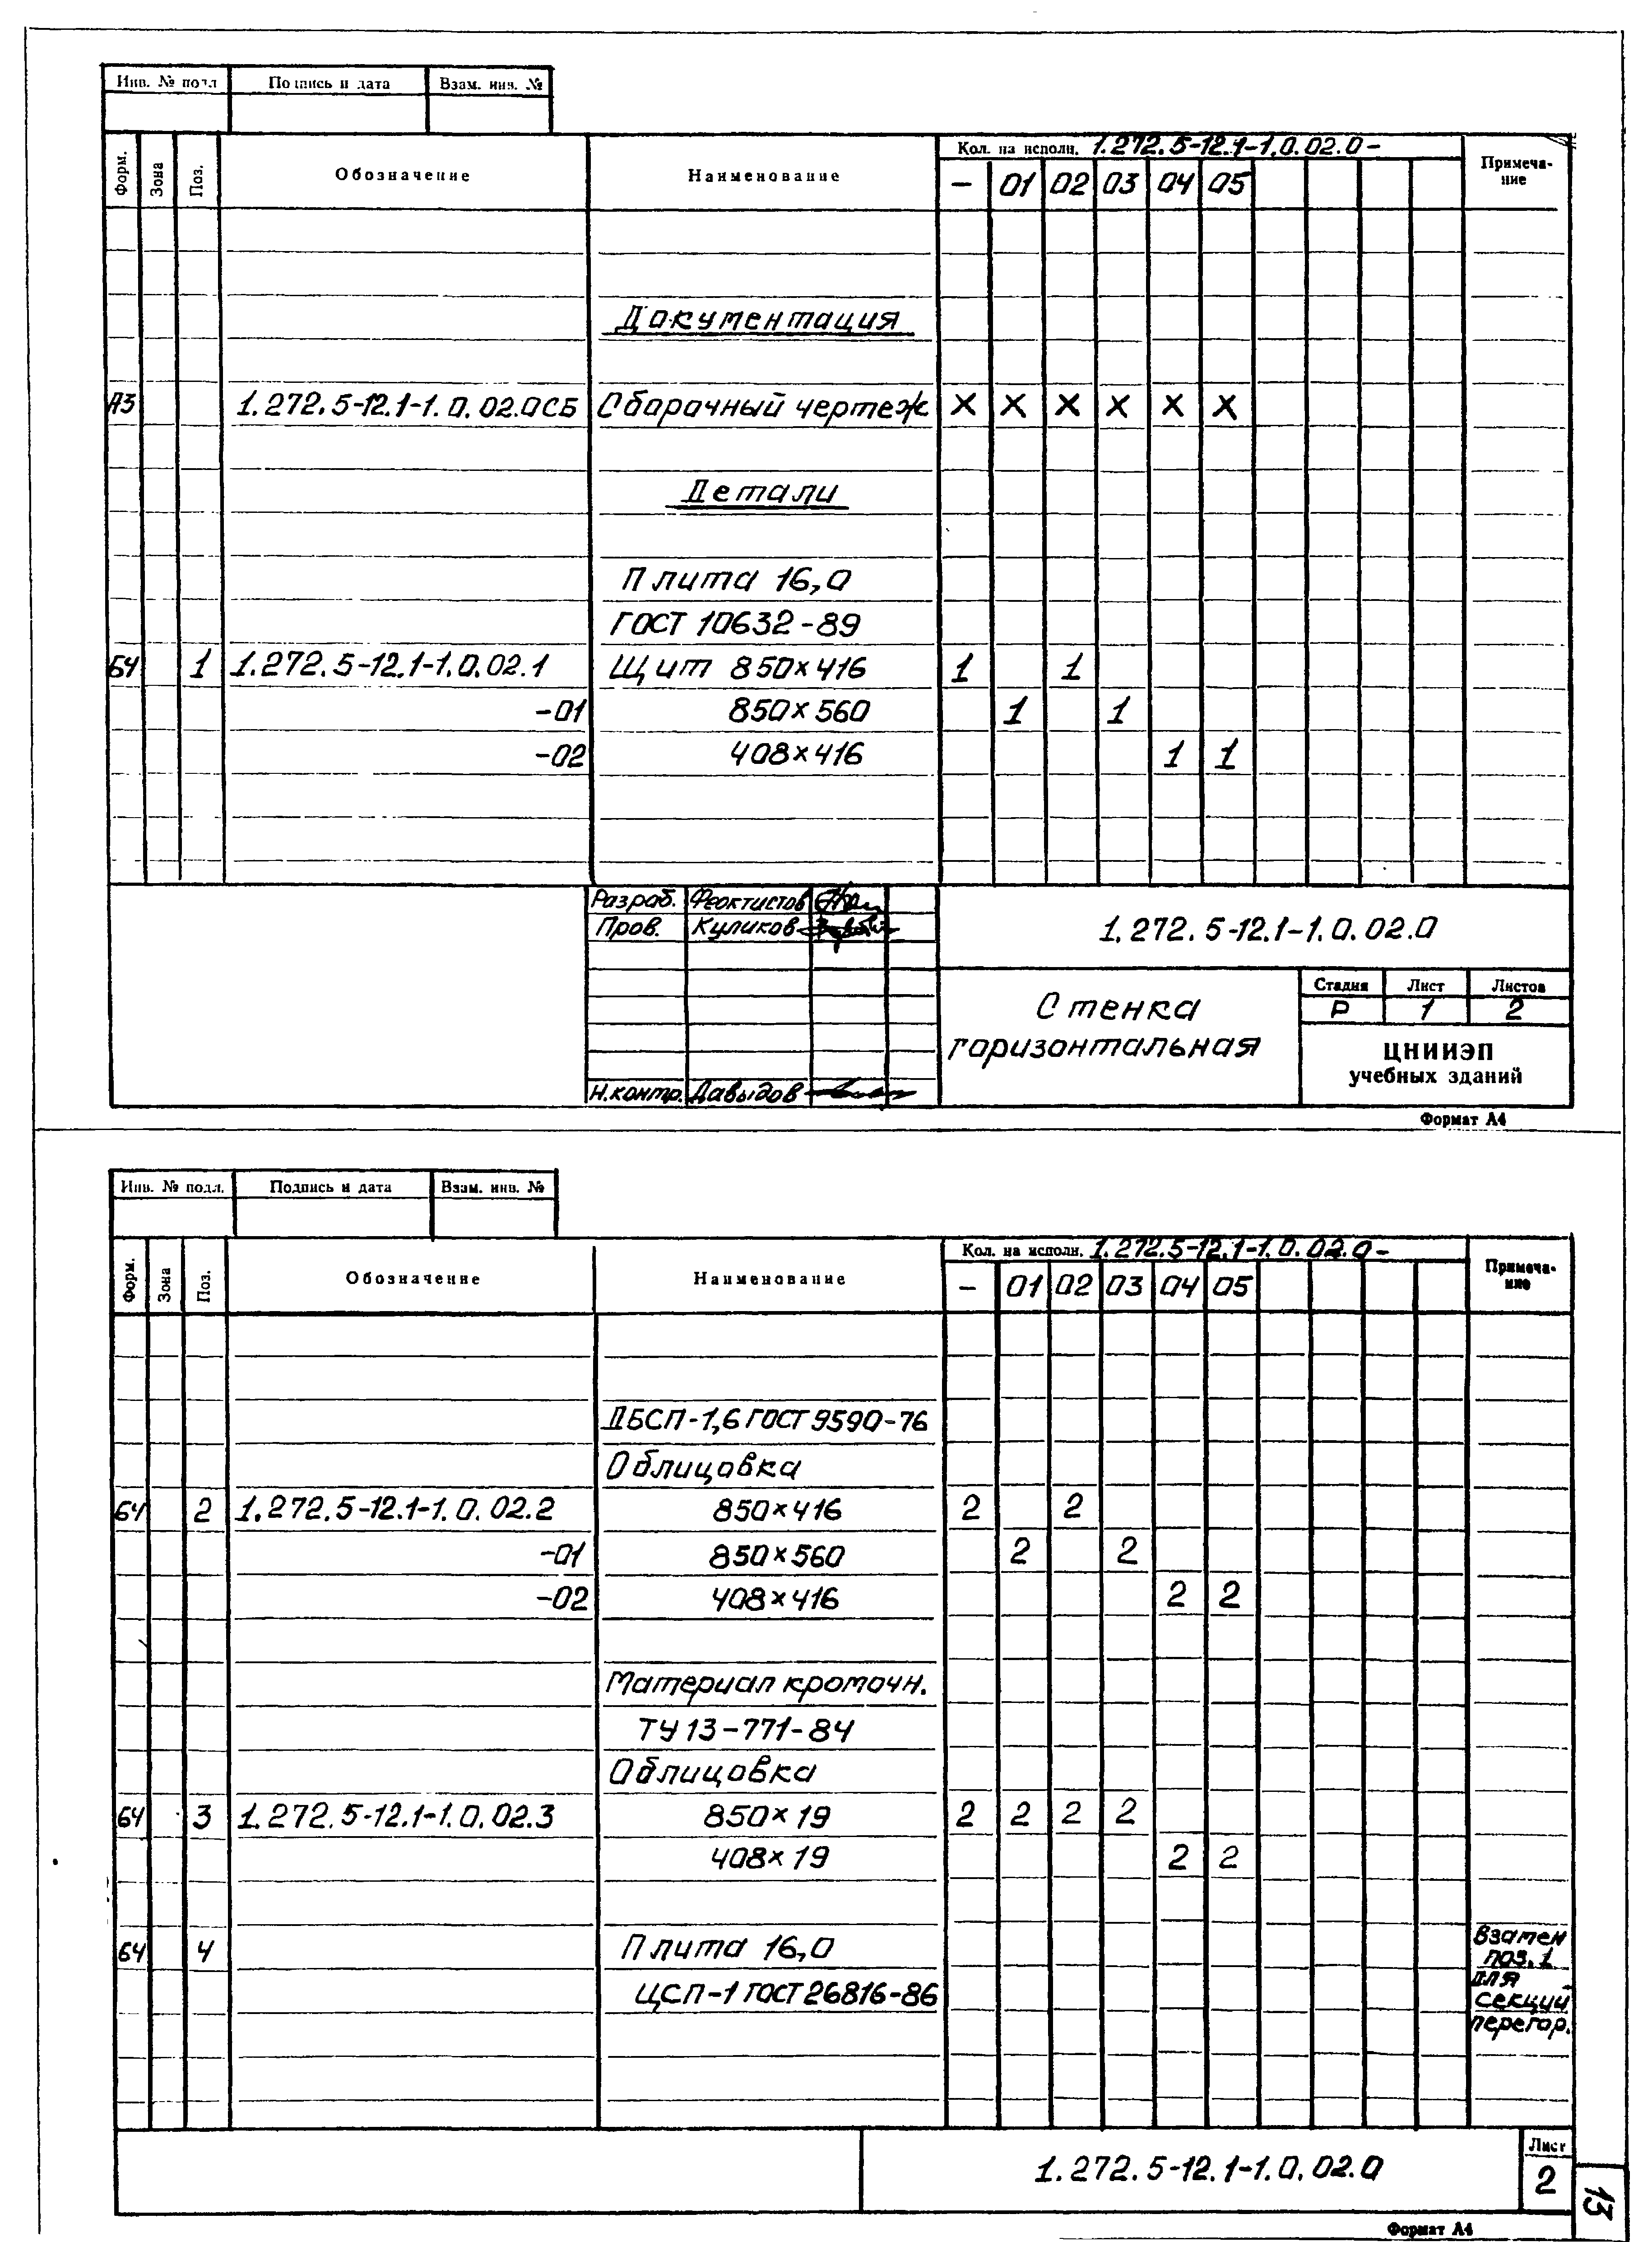 Инв. № подл Подпись и дата Взам. инв. №
Форм. Зона Поз. Обозначение Наименование Кол. на исполн. 1.272.5-12.1-1.0.02.0- Примеча-
ние
- 01 02 03 04 05
Документация
А3 1.272.5-12.1-1.0.02.0СБ Сборочный чертеж X X X X X X
Детали
Плита 16,0
ГОСТ 10632-89
БЧ 1 1.272.5-12.1-1.0.02.1 Щит 850×416 1 1
-01 850×560 1 1
-02 408×416 1 1
Разраб. Феоктистов
Пров. Куликов
1.272.5-12.1-1.0.02.0
Стенка
горизонтальная
Стадия Лист Листов
Р 1 2
ЦНИИЭП
учебных зданий
Н.контр. Давыдов
Формат А4
Инв. № подл. Подпись и дата Взам. инв. №
Форм. Зона Поз. Обозначение Наименование Кол. на исполн. 1.272.5-12.1-1.0.02.0- Примеча-
ние
- 01 02 03 04 05
ДБСП-1,6 ГОСТ 9590-76
Облицовка
БЧ 2 1.272.5-12.1-1.0.02.2 850×416 2 2
-01 850×560 2 2
-02 408×416 2 2
Материал кромочн.
ТУ 13-771-84
Облицовка
БЧ 3 1.272.5-12.1-1.0.02.3 850×19 2 2 2 2
408×19 2 2
БЧ 4 Плита 16,0
ЦСП-1 ГОСТ 26816-86
Взамен
поз. 1
для
секций
перегор.
1.272.5-12.1-1.0.02.0
Лист
2
13
Формат А4